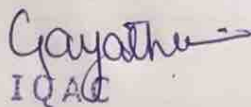 Gayathri
IQAC